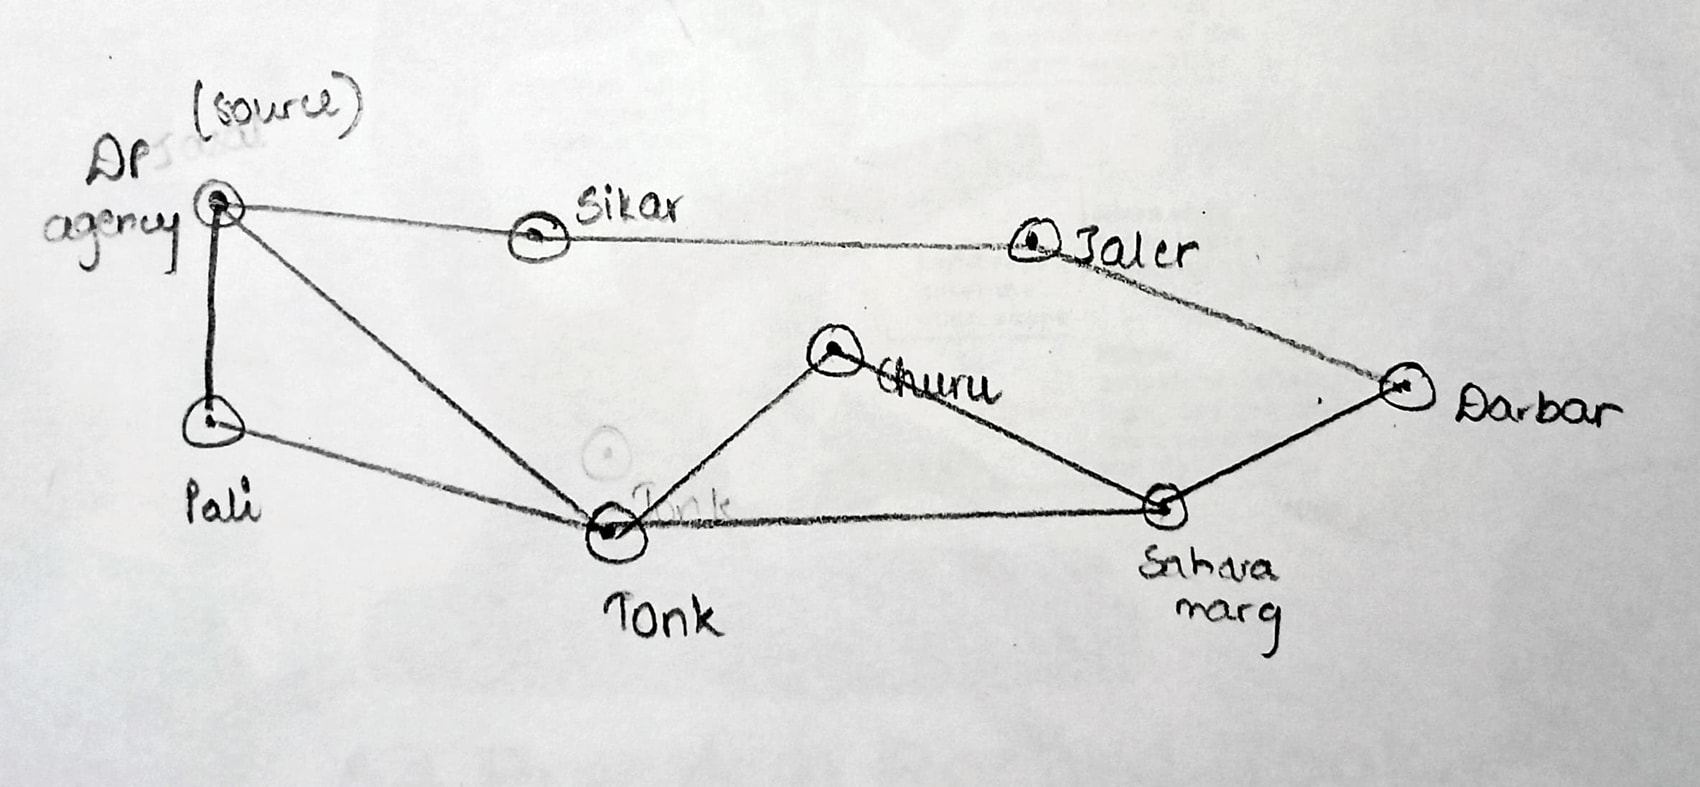 (source)
DP
agency
Sikar
Jaler
Churu
Darbar
Pali
Tonk
Tonk
Sahara
marg